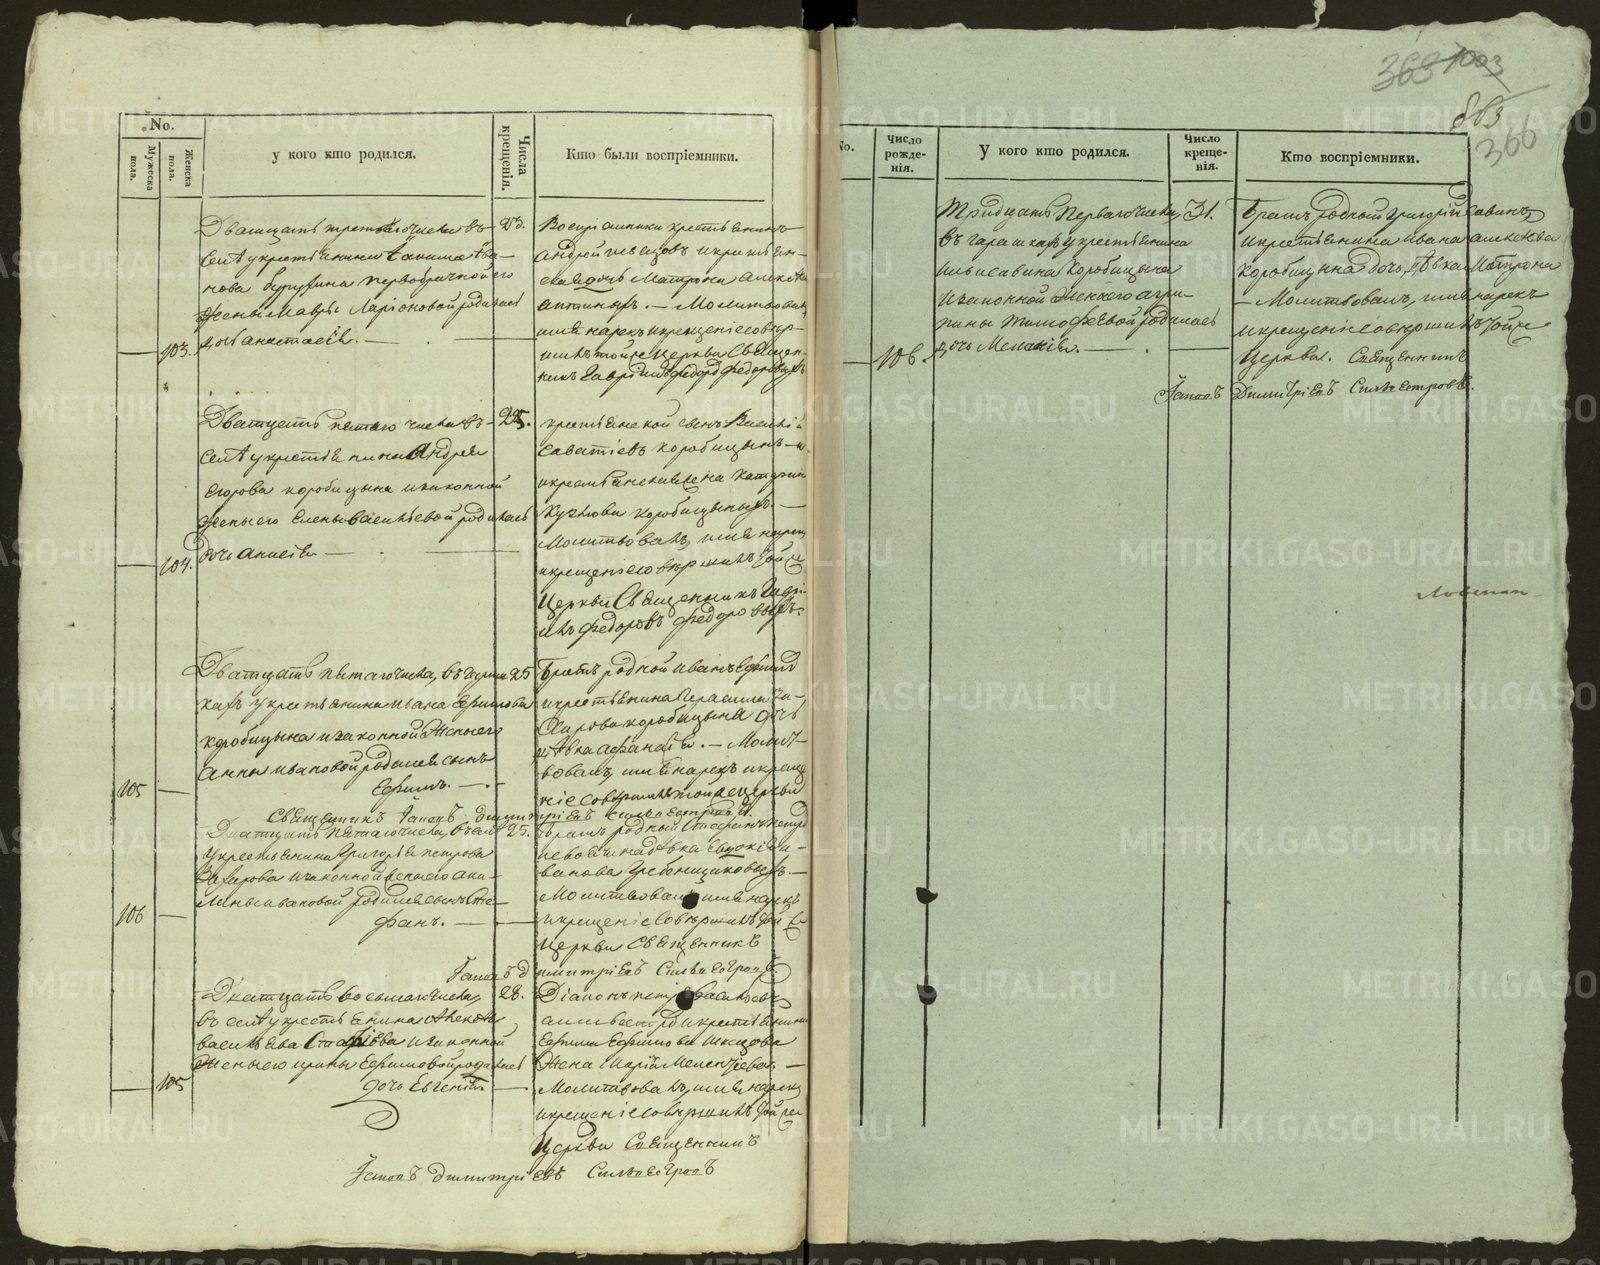 No.
Мужеска пола.
Женска пола.
у кого кто родился.
Числа крещенія.
Кто были воспріемники.
Дватцать третьяго числа въ
селѣ у крестьянина
первобрачной его
жены Мавры Ларіоновой родилась
дочь Анастасія.
103.
23.
Воспріемники крестьянинъ
Андрей Швецовъ и крестьян-
ская дочь Матрона
Молитвовалъ
имя нарекъ и крещеніе совер-
шилъ той же Церкви Священ-
никъ Гавріилъ Федоровъ
Дватцать пятаго числа въ
селѣ у крестьянина Андрея
Егорова Коробицына и законной
жены его Елены Васильевой родилась
дочь Анисія
104.
25.
крестьянской сынъ Василій
Саватіевъ Коробицынъ
и крестьянская жена
Коробицыныхъ.
Молитвовалъ, имя нарекъ
и крещеніе совершилъ той же
Церкви Священникъ Гаврі-
илъ Федоровъ
Дватцать пятаго числа, въ Гараш-
кахъ у крестьянина Ивана Ефимова
Коробицына и законной жены его
Анны Ивановой родился сынъ
Ефимъ.
105
25
Братъ родной Иванъ Ефимовъ
и крестьянина Герасима За-
харова Коробицына дочь
дѣвка Афанасія. Молит-
вовалъ, имя нарекъ и креще-
ніе совершилъ той же церкви
Священникъ Іаковъ Димитріевъ Сильвестровъ.
Дватцать пятаго числа, въ селѣ
у крестьянина Григорья Петрова
Захарова и законной жены его Аку-
лины Ивановой родился сынъ Сте-
фанъ.
106
25.
Братъ родной Стефанъ Петровъ
дѣвка Евдокія И-
ванова Гребенщиковыхъ.
Молитвовалъ имя нарекъ
и крещеніе совершилъ той же
Церкви Священникъ
Іаковъ Димитріевъ Сильвестровъ.
Дватцать восьмаго числа,
въ селѣ у крестьянина Алексѣя
Васильева и законной
жены его Ирины Ефимовой родилась
дочь Евгенія.
105
28.
Діаконъ Петръ Васильевъ
и крестьянина
Ефима Ефимова Швецова
жена Марія Мелентьева.
Молитвовалъ, имя нарекъ
и крещеніе совершилъ той же
Церкви Священникъ
Іаковъ Димитріевъ Сильвестровъ
363 1003
863
366
No.
Число рожде-нія.
У кого кто родился.
Число креще-нія.
Кто воспріемники.
Тридцать перваго числа,
въ Гарашкахъ у крестьянина
Ильи Савина Коробицына
и законной жены его Агри-
пины Тимофеевой родилась
дочь Меланія.
106.
31.
Братъ родной Григорій Савинъ,
и крестьянина Ивана Алексѣева
Коробицына дочь, дѣвка Матрона
Молитвовалъ, имя нарекъ
и крещеніе совершилъ той же
церкви. Священникъ
Іаковъ Димитріевъ Сильвестровъ.
METRIKI.GASO-URAL.RU